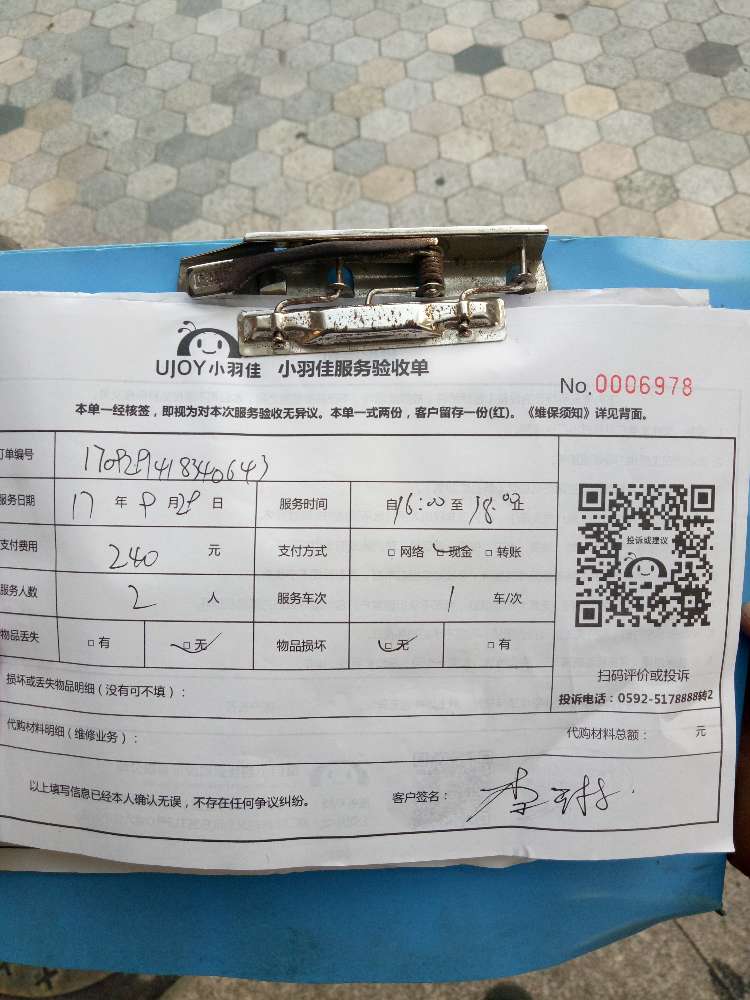 UJOY小羽佳 小羽佳服务验收单
No.0006978
本单一经核签，即视为对本次服务验收无异议。本单一式两份，客户留存一份(红)。《维保须知》详见背面。
订单编号
服务日期 17 年 9 月 29 日 服务时间 自 16:00 至 18:00 止
支付费用 240 元 支付方式 □ 网络 □ 现金 □ 转账
服务人数 2 人 服务车次 1 车/次
物品丢失 □ 有 □ 无 物品损坏 □ 无 □ 有
投诉或建议
扫码评价或投诉
投诉电话：0592-5178888转2
损坏或丢失物品明细（没有可不填）：
代购材料明细（维修业务）： 代购材料总额： 元
以上填写信息已经本人确认无误，不存在任何争议纠纷。 客户签名： 李